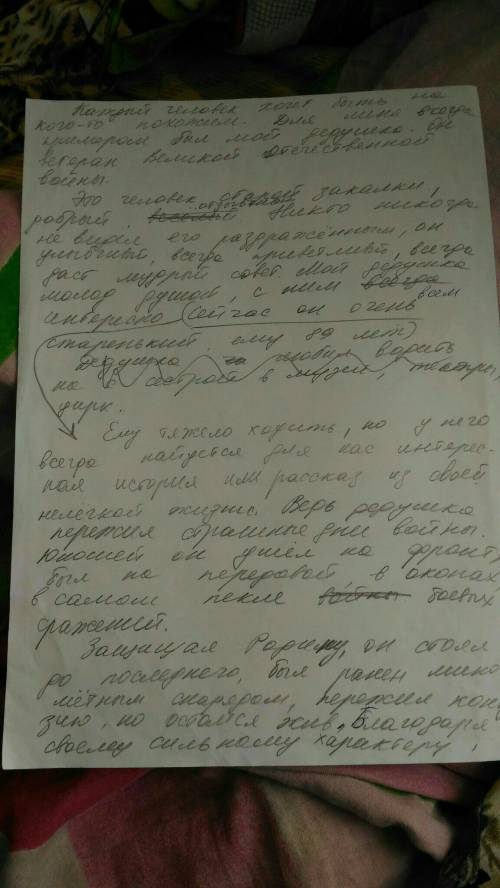 Каждый человек хочет быть на
кого-то похожим. Для меня всегда
примером был мой дедушка. Он
ветеран Великой Отечественной
войны.
Это человек старой закалки,
добрый, Никто никогда
не видел его раздражённым, он
улыбчивый, всегда приветливый, всегда
даст мудрый совет. Мой дедушка
молод душой, с ним всегда всем
интересно (Сейчас он очень
старенький. ему 89 лет)
Дедушка любил водить
нас с сестрой в музеи, театры,
цирк.
Ему тяжело ходить, но у него
всегда найдётся для нас интерес-
ная история или рассказ из своей
нелёгкой жизни. Ведь дедушка
пережил страшные дни войны.
Юношей он ушёл на фронт,
был на передовой в окопах
в самом пекле войны боевых
сражений.
Защищая Родину, он стоял
до последнего, был ранен мино
мётным снарядом, пережил кон
зию, но остался жив. Благодаря
своему сильному характеру,